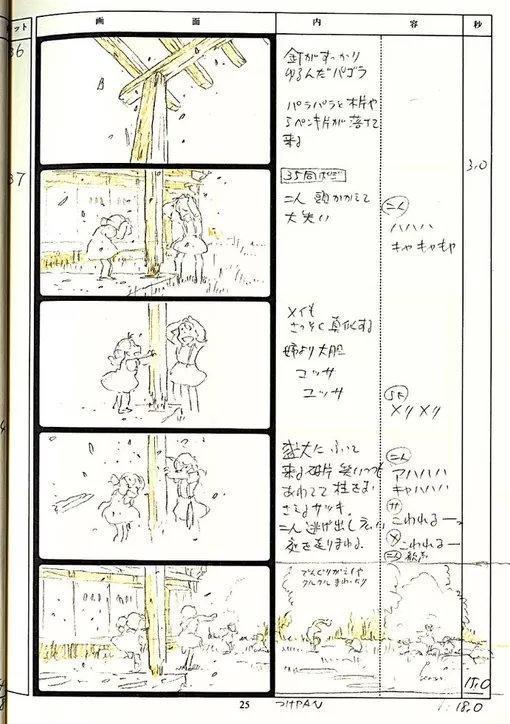 カット 画 面 内 容 秒
36
釘がすっかり
ゆるんだパゴラ
パラパラと木片や
ペンキ片が落ちて
来る
3.0
37
35同ポジ
二人 頭かかえて
大笑い
二人
ハハハハ
キャキャキャ
メイも
さっそく真似する
姉より大胆
ユッサ
ユッサ
メリメリ
盛大にふって
来る破片 笑いつつ
あわてて柱を
ささえるサツキ
二人逃げ出し
庭を走りまわる
二人
アハハハハ
キャハハハハ
サ
こわれるー
メ
こわれるー
二人 歓声
でんぐりがえしや
クルクルまわったり
15.0
25
つけPAN
18.0